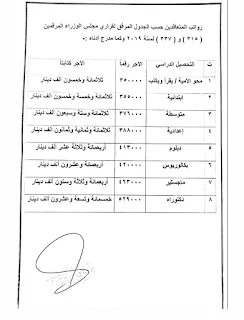 رواتب المتعاقدين حسب الجدول المرفق لقراري مجلس الوزراء المرقمين
( ٣١٥ ) و ( ٣٣٧ ) لسنة ٢٠١٩ وكما مدرج أدناه :-
ت التحصيل الدراسي الاجر رقماً الاجر كتابتاً
١ محو الأمية / يقرأ ويكتب ٣٥٠٠٠٠ ثلاثمائة وخمسون الف دينار
٢ إبتدائية ٣٥٥٠٠٠ ثلاثمائة وخمسة وخمسون الف دينار
٣ متوسطة ٣٧٦٠٠٠ ثلاثمائة وستة وسبعون ألف دينار
٤ إعدادية ٣٨٨٠٠٠ ثلاثمائة وثمانية وثمانون ألف دينار
٥ دبلوم ٤١٣٠٠٠ أربعمائة وثلاثة عشر ألف دينار
٦ بكالوريوس ٤٢٠٠٠٠ أربعمائة وعشرون ألف دينار
٧ ماجستير ٤٦٣٠٠٠ أربعمائة وثلاثة وستون ألف دينار
٨ دكتوراه ٥٢٩٠٠٠ خمسمائة وتسعة وعشرون ألف دينار